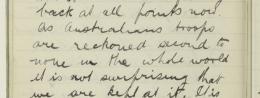 back at all points now.
As Australians troops
are reckoned second to
none in the whole world
it is not surprising that
we are kept at it. It is